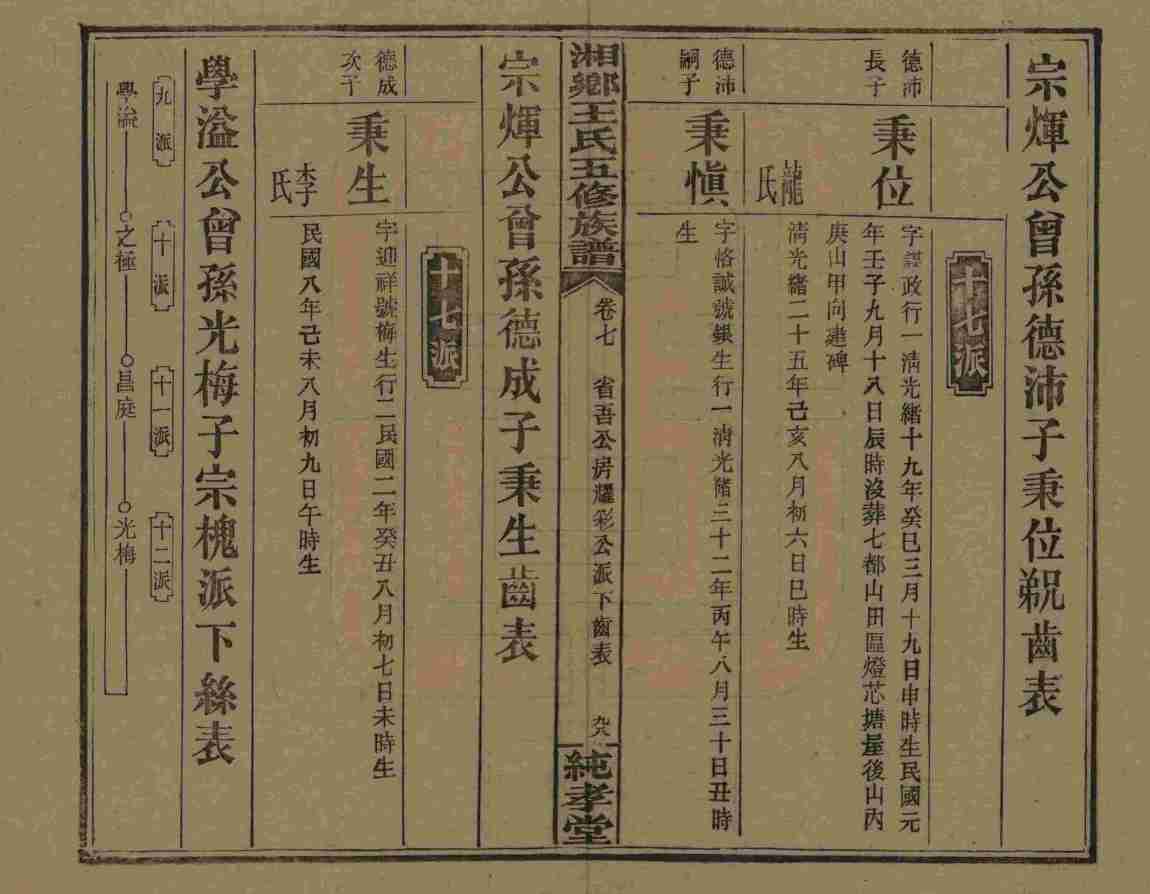 宗煇公曾孫德沛子秉位貎齒表
十七派
德沛
長子
秉位
字謀政行一淸光緒十九年癸巳三月十九日申時生民國元
年壬子九月十八日辰時沒葬七都山田區燈芯塘屋後山內
庚山甲向建碑
龍氏
淸光緒二十五年己亥八月初六日巳時生
德沛
嗣子
秉愼
字恪誠號銀生行一淸光緒三十二年丙午八月三十日丑時
生
湘鄉王氏五修族譜
卷七
省吾公房耀彩公派下齒表
純孝堂
宗煇公曾孫德成子秉生齒表
十七派
德成
次子
秉生
字迎祥號梅生行二民國二年癸丑八月初七日未時生
李氏
民國八年己未八月初九日午時生
學溢公曾孫光梅子宗槐派下絲表
九派
十派
十一派
十二派
學溢
之極
昌庭
光梅